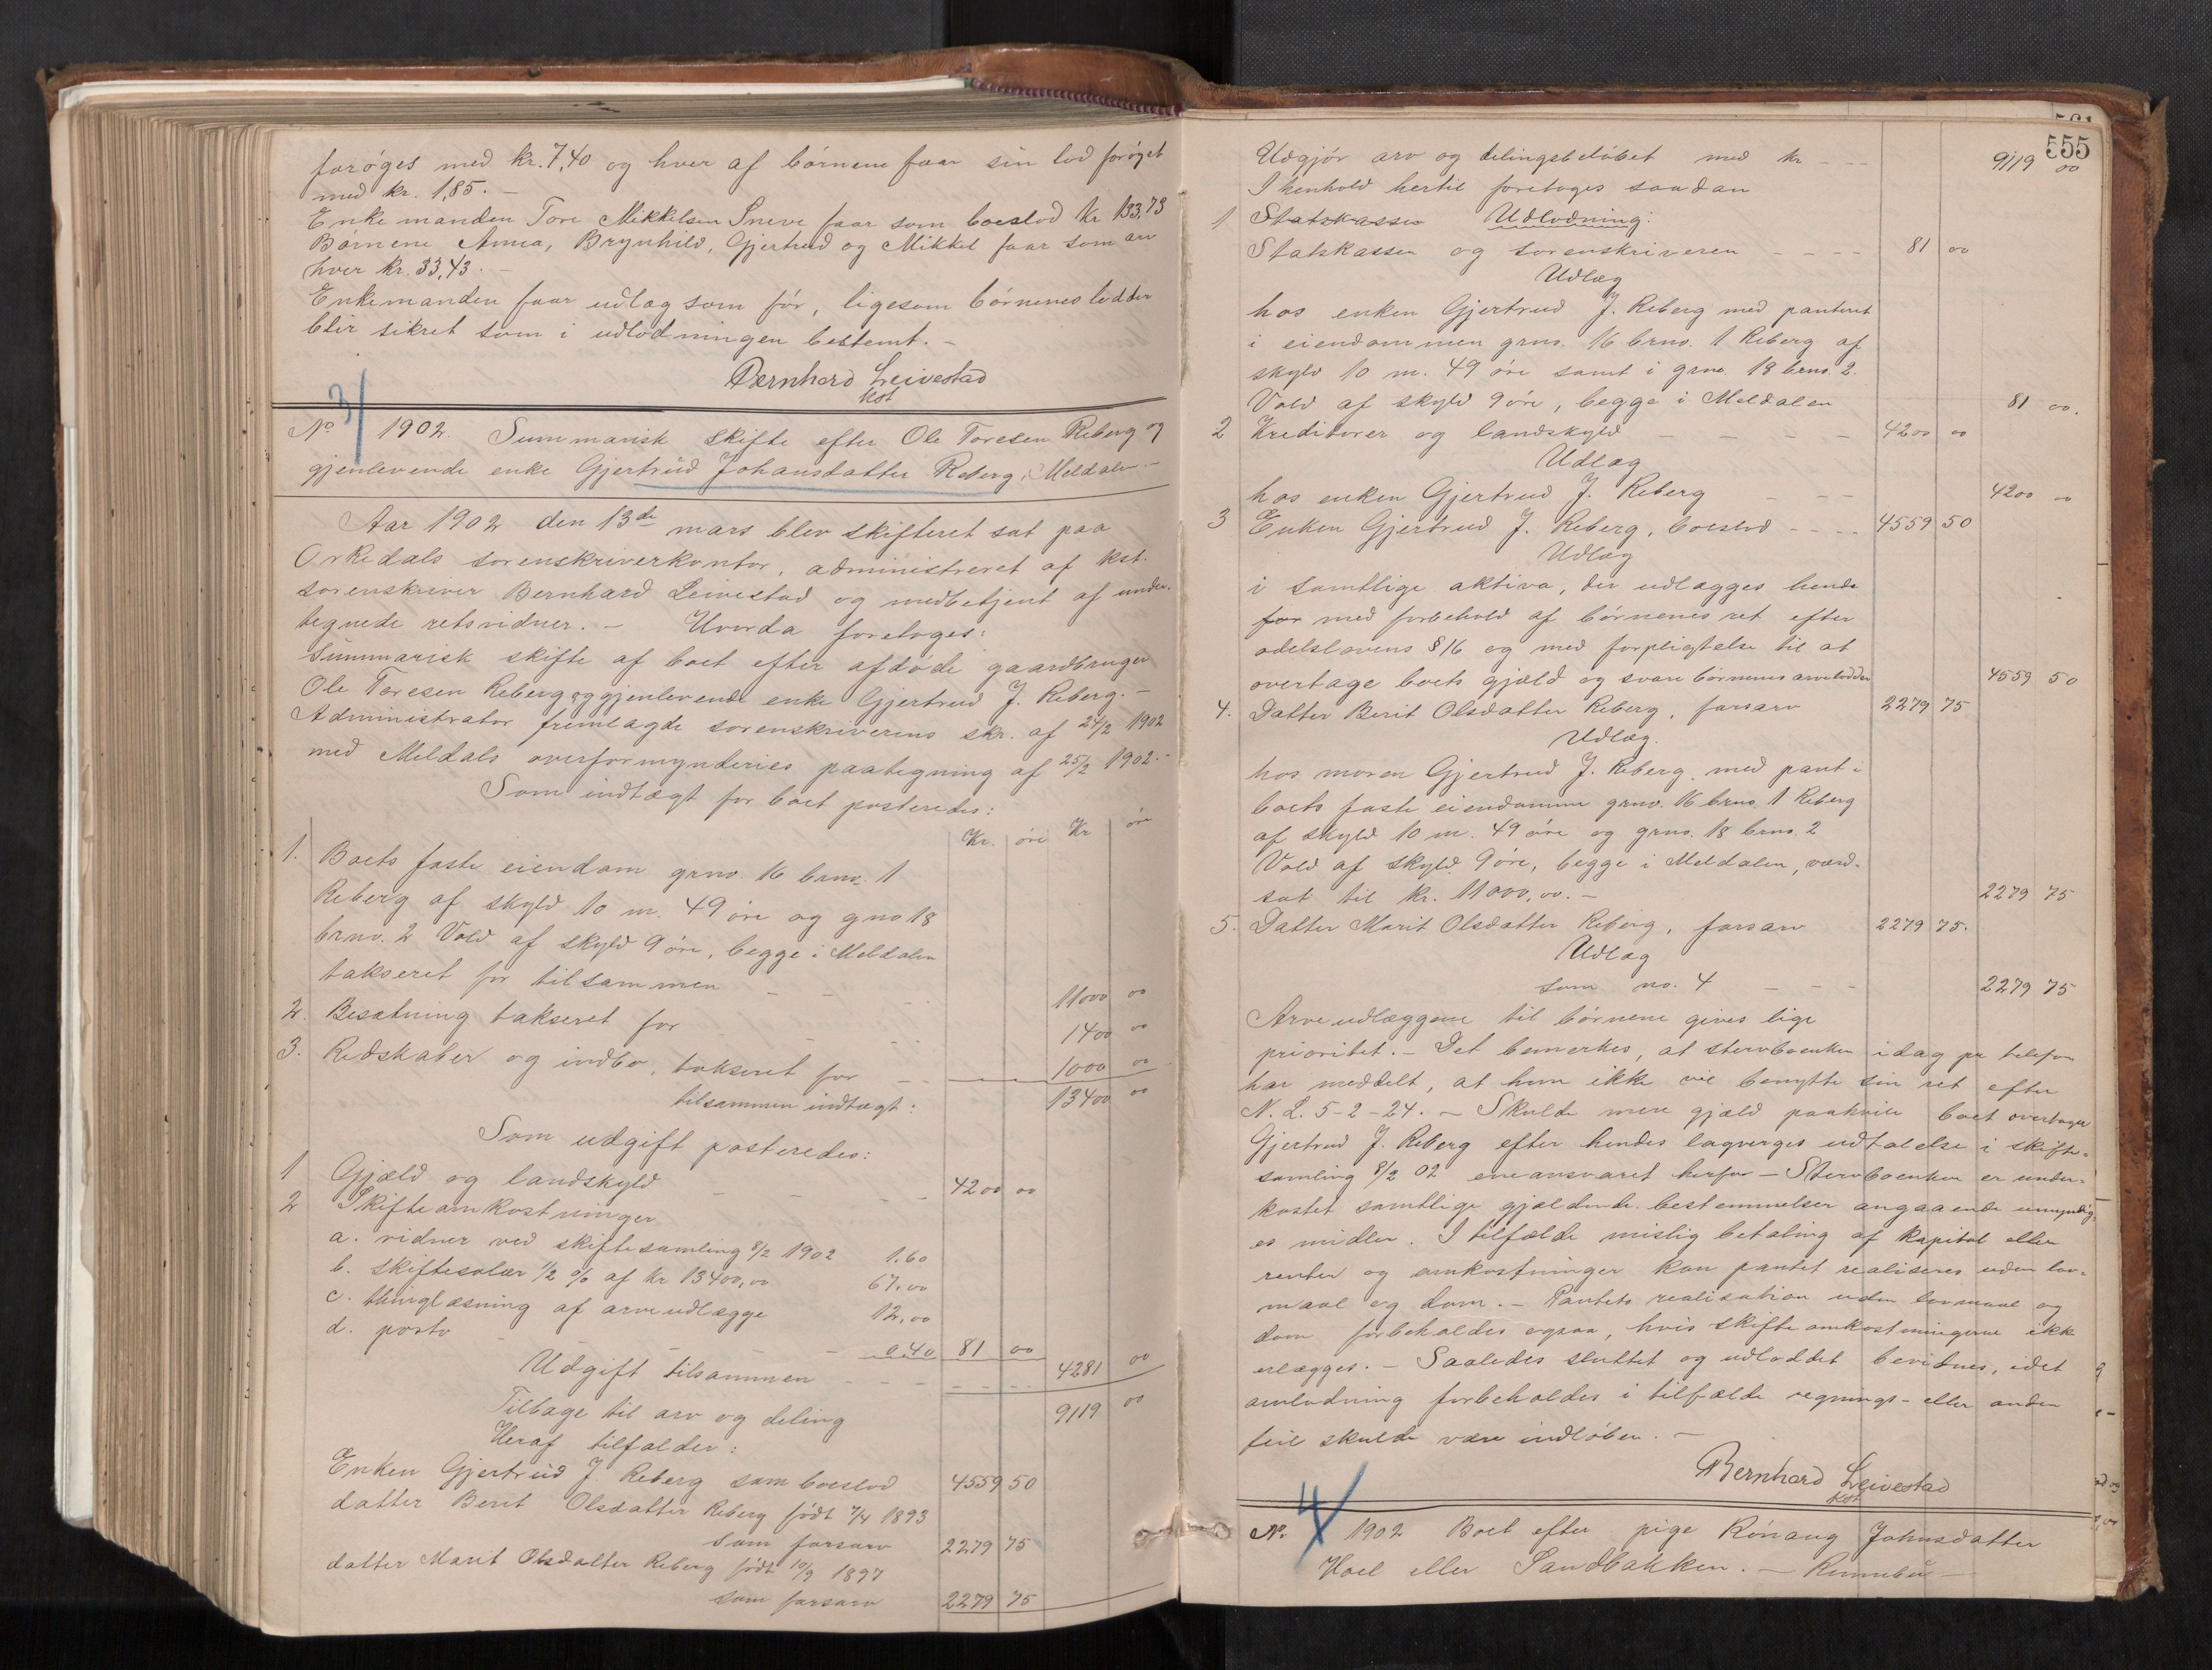 forøges med kr. 7,40 og hver af børnene faar sin lod forøget
med kr. 1,85. –
Enkemanden Tore Mikkelsen Sneve faar som boeslod kr 133,73
Børnene Anna, Brynhild, Gjertrud og Mikkel faar som arv
hver kr. 33,43. –
Enkemanden faar udlæg som før, ligesom børnenes lodder
blir sikret som i udlodningen bestemt. –
Bernhard Leivestad
kst
No 3/ 1902. Summarisk skifte efter Ole Toresen Reberg og
gjenlevende enke Gjertrud Johansdatter Reberg, Meldalen. –
Aar 1902 den 13de mars blev skifteret sat paa
Orkedals sorenskriverkontor, administreret af kst.
sorenskriver Bernhard Leivestad og medbetjent af under-
tegnede retsvidner. – Hvorda foretoges:
Summarisk skifte af boet efter afdøde gaardbruger
Ole Toresen Reberg og gjenlevende enke Gjertrud J. Reberg. –
Administrator fremlagde sorenskriverens skr. af 24/2 1902
med Meldals overformynderies paategning af 25/2 1902. –
Som indtægt for boet posteredes:
Kr. øre Kr øre
1. Boets faste eiendom grno. 16 brno. 1
Reberg af skyld 10 m. 49 øre og gno 18
brno. 2 Vold af skyld 9 øre, begge i Meldalen
takseret for tilsammen – – 11000 00
2. Besætning takseret for – – 1400 00
3. Redskaber og indbo, takseret for – 1000 00
tilsammen indtægt: 13400 00
Som udgift posteredes:
1 Gjæld og landskyld – – – 4200 00
2 Skifteomkostninger
a. vidner ved skiftesamling 8/2 1902 1.60
b. skiftesalær 1/2 % af kr 13400,00 67.00
c. thinglæsning af arveudlægge 12,00
d. porto – – – 0.40 81 00
Udgift tilsammen – – – – 4281 00
Tilbage til arv og deling 9119 00
Heraf tilfalder:
Enken Gjertrud J. Reberg som boeslod 4559 50
datter Berit Olsdatter Reberg født 7/4 1893
som farsarv 2279 75
datter Marit Olsdatter Reberg født 10/9 1897
som farsarv 2279 75
555
Udgjør arv og delingsbeløbet med kr – – – 9119 00
I henhold hertil foretages saadan
1 Statskassen Udlodning:
Statskassen og sorenskriveren – – – – 81 00
Udlæg
hos enken Gjertrud J. Reberg med panteret
i eiendommen grno. 16 brno. 1 Reberg af
skyld 10 m. 49 øre samt i grno. 18 brno. 2.
Vold af skyld 9 øre, begge i Meldalen 81 00.
2 Kreditorer og landskyld – – – – 4200 00
Udlæg
hos enken Gjertrud J. Reberg – – – 4200 00
3 Enken Gjertrud J. Reberg, boeslod – – – – 4559 50
Udlæg
i samtlige aktiva, der udlægges hende
for med forbehold af børnenes ret efter
odelslovens § 16 og med forpligtelse til at
overtage boets gjæld og svare børnenes arvelodder 4559 50
4. Datter Berit Olsdatter Reberg, farsarv 2279 75
Udlæg.
hos moren Gjertrud J. Reberg med pant i
boets faste eiendomme grno. 16 brno. 1 Reberg
af skyld 10 m. 49 øre og grno. 18 brno. 2
Vold af skyld 9 øre, begge i Meldalen, værd-
sat til kr. 11000,00. – 2279 75
5. Datter Marit Olsdatter Reberg, farsarv 2279 75.
Udlæg
som no. 4 – – – 2279 75
Arveudlæggene til børnene gives lige
prioritet. – Det bemerkes, at stervboenken idag pr telefon
har meddelt, at hun ikke vil benytte sin ret efter
N. L. 5-2-24. – Skulde mere gjæld paahvile boet overtager
Gjertrud J. Reberg efter hendes lagverges udtalelse i skifte-
samling 8/2 02 eneansvaret herfor – Stervboenken er under-
kastet samtlige gjældende bestemmelser angaaende umyndig-
es midler. I tilfælde mislig betaling af kapital eller
renter og omkostninger kan pantet realiseres uden lov-
maal og dom. – Pantets realisation uden lovmaal og
dom forbeholdes ogsaa, hvis skifteomkostningerne ikke
erlægges. – Saaledes sluttet og udloddet bevidnes, idet
omlodning forbeholdes i tilfælde regnings- eller anden
feil skulde være indløben. –
Bernhard Leivestad
kst
No. 4/ 1902 Boet efter pige Rønaug Johnsdatter
Hoel eller Sandbakken. – Rennebu –